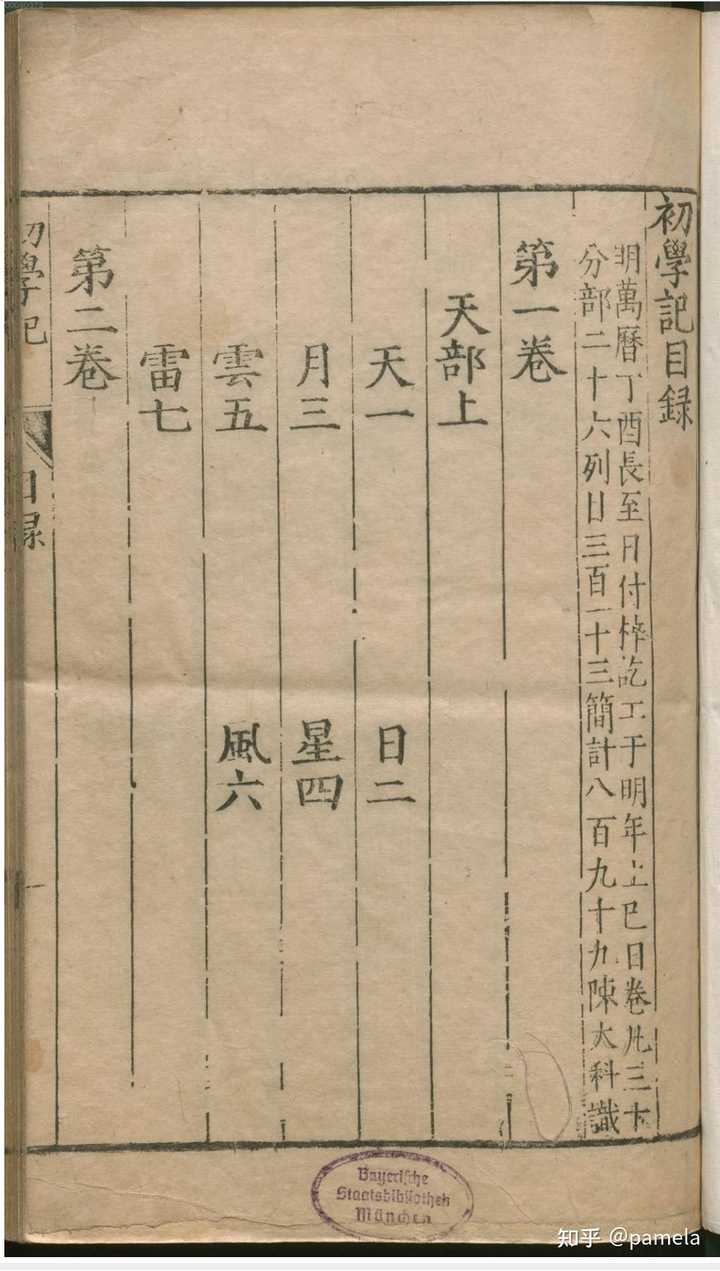 初學記目録
明萬曆丁酉長至日付梓訖工于明年上巳日卷凡三十
分部二十六列目三百一十三簡計八百九十九陳大科識
第一卷
天部上
天一 日二
月三 星四
雲五 風六
雷七
第二卷
初學記 目录
一
Bayerische
Staatsbibliothek
München
知乎 @pamela